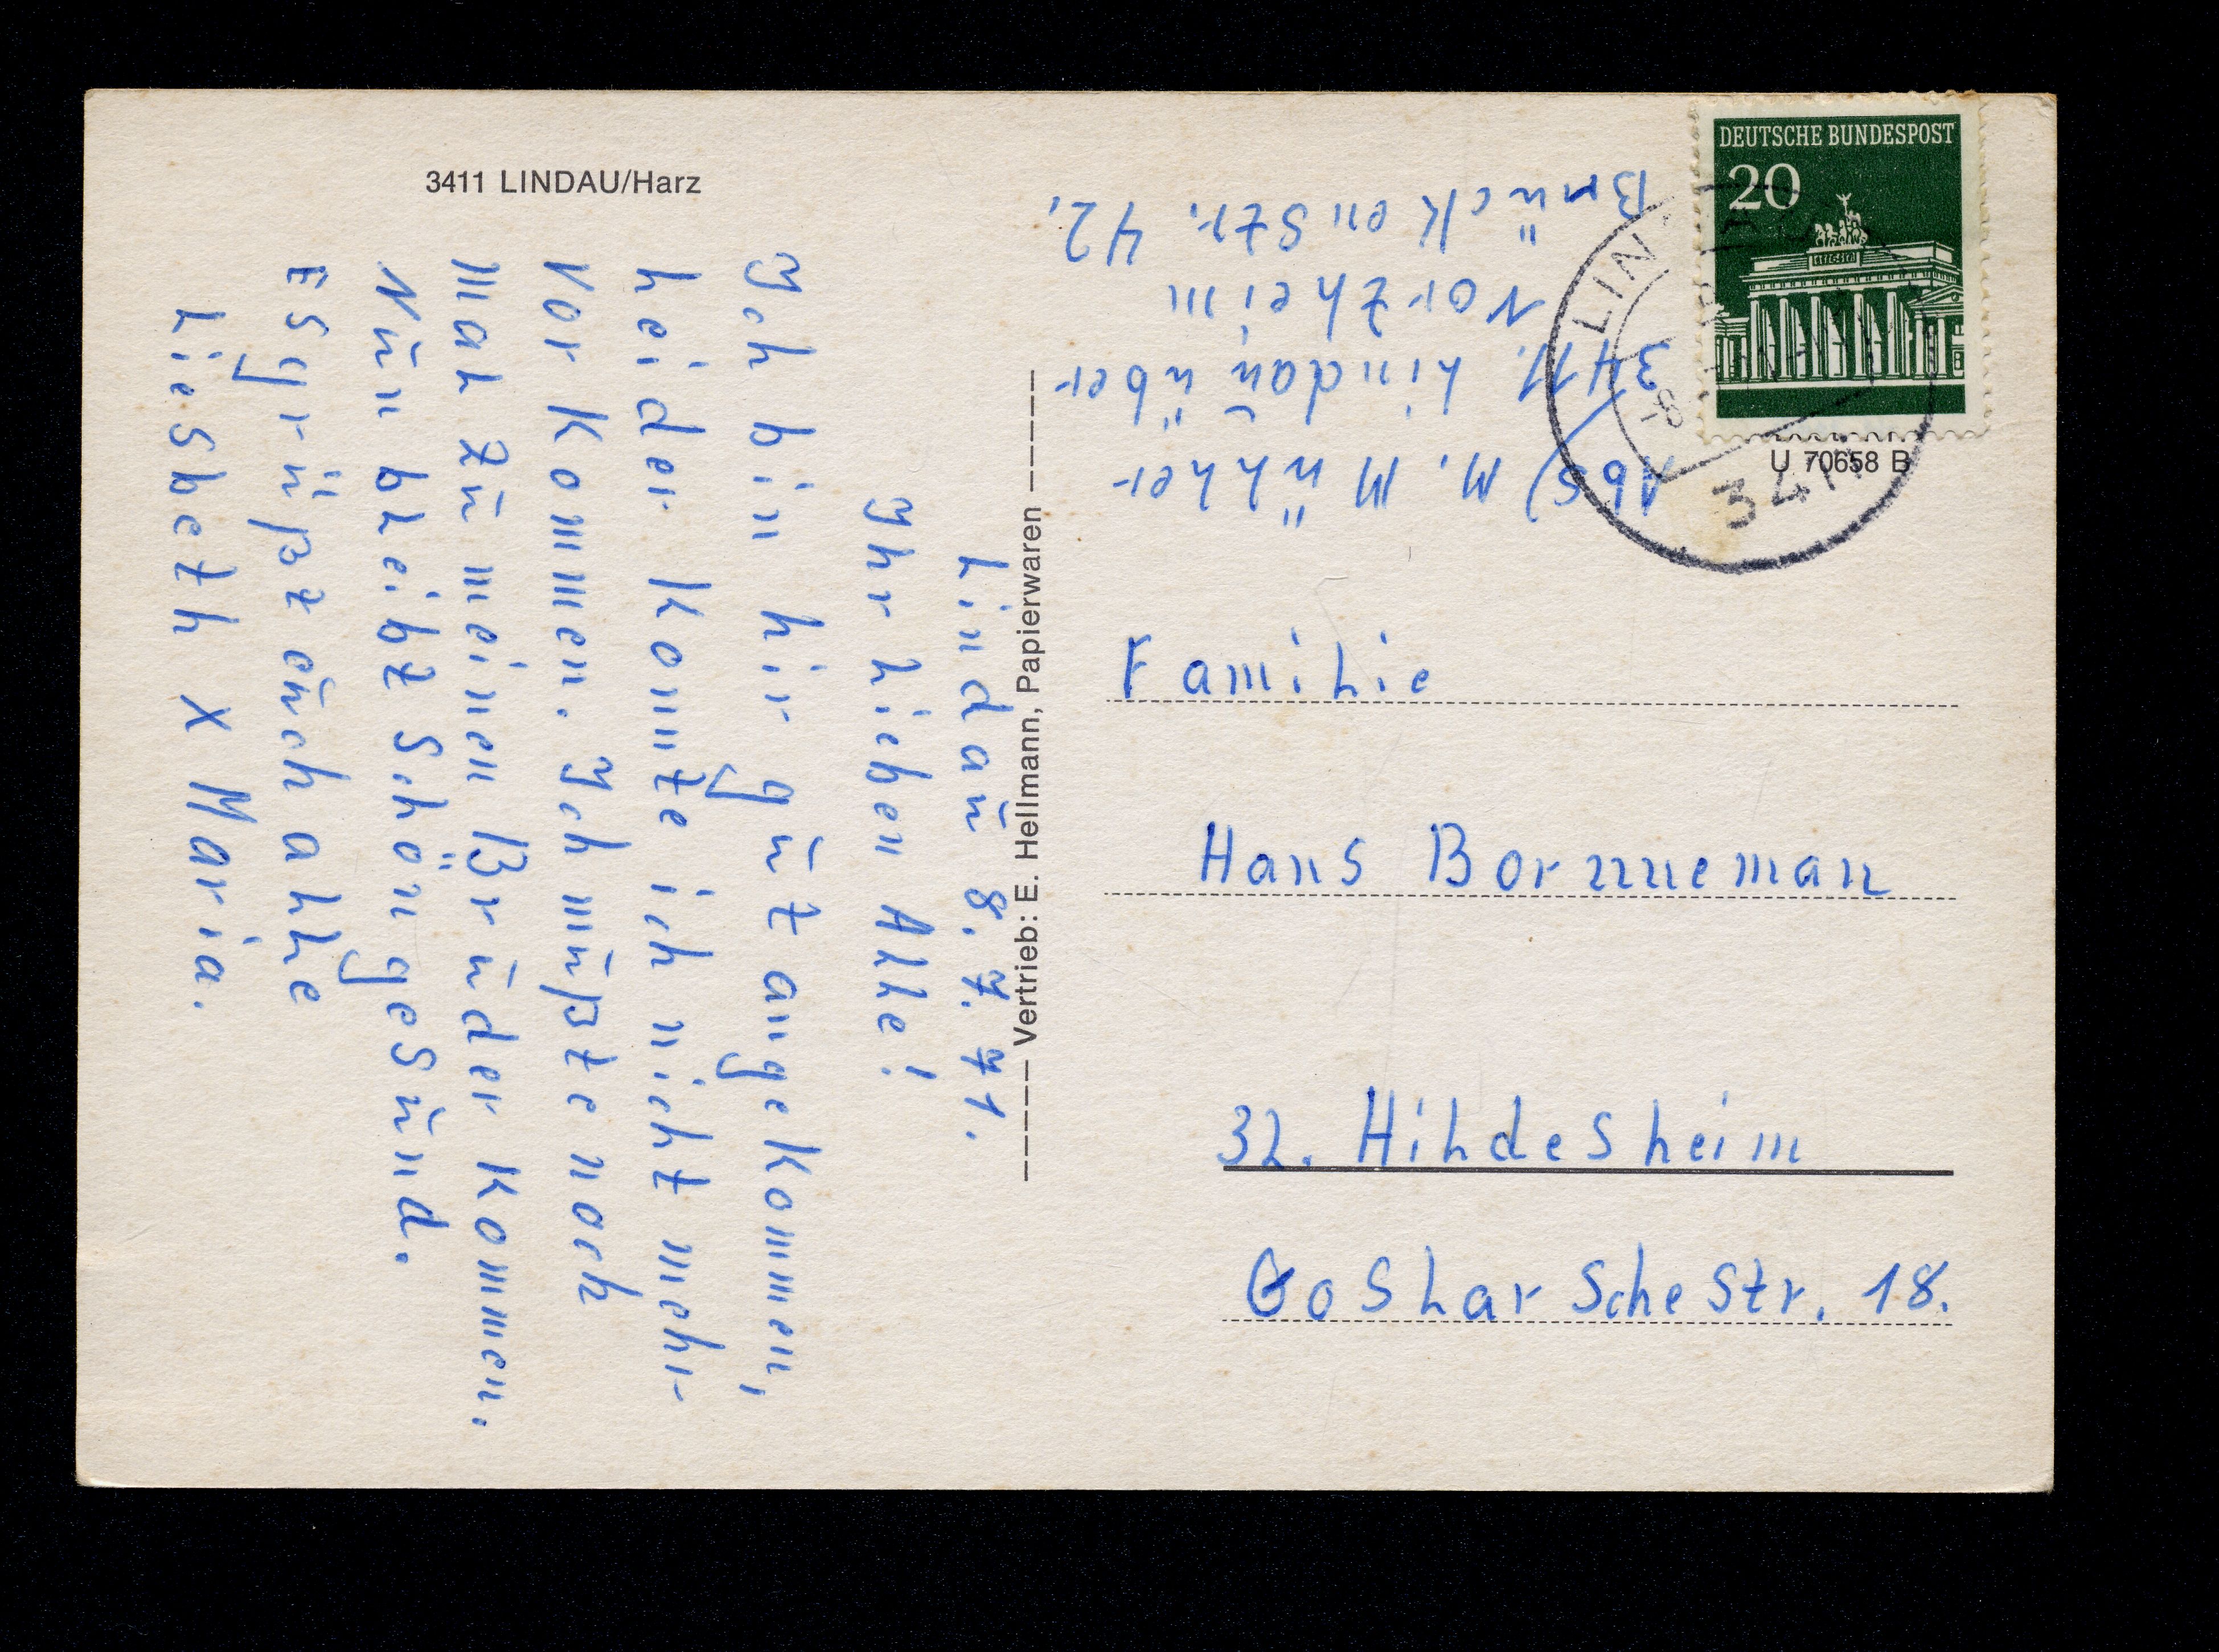 3411 LINDAU/Harz
Lindau 8.7.71.
Ihr lieben Alle!
Ich bin hir gut angekommen,
leider konnte ich nicht mehr
vor kommen. Ich mußte noch
mal zu meinen Bruder kommen.
Nun bleibt schön gesund.
Es grüßt auch alle
Liesbeth X Maria.
Vertrieb: E. Hellmann, Papierwaren
Abs) M. Müller
3411. Lindau über
Northeim
Brückenstr. 42.
DEUTSCHE BUNDESPOST
20
LIN
3411
U 70658 B
Familie
Hans Bornneman
32. Hildesheim
Goslarsche Str. 18.